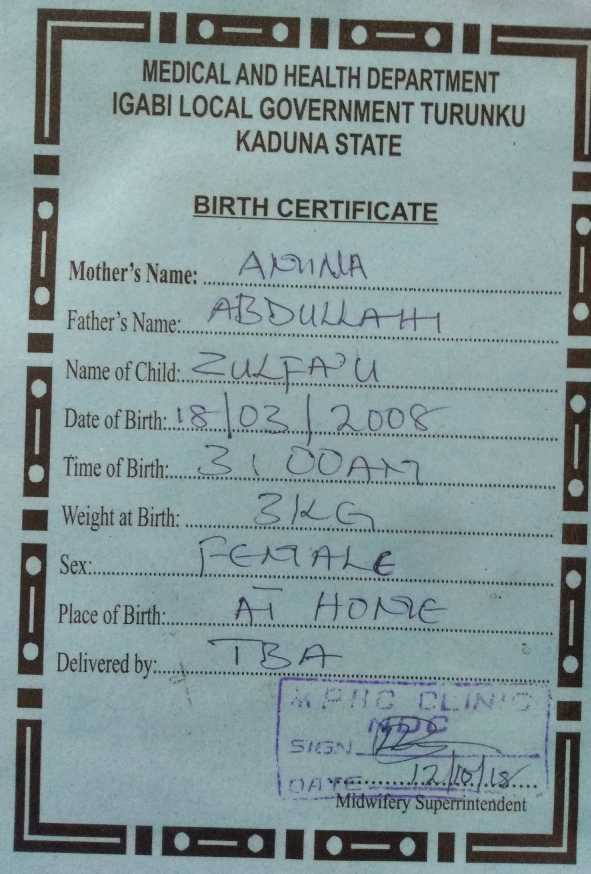 MEDICAL AND HEALTH DEPARTMENT
IGABI LOCAL GOVERNMENT TURUNKU
KADUNA STATE
BIRTH CERTIFICATE
Mother's Name: AMINA
Father's Name: ABDULLAHI
Name of Child: ZULFA'U
Date of Birth: 18/03/2008
Time of Birth: 3:00AM
Weight at Birth: 3KG
Sex: FEMALE
Place of Birth: AT HOME
Delivered by: TBA
PHC CLINIC
SIGN
DATE 12/10/18
Midwifery Superrintendent